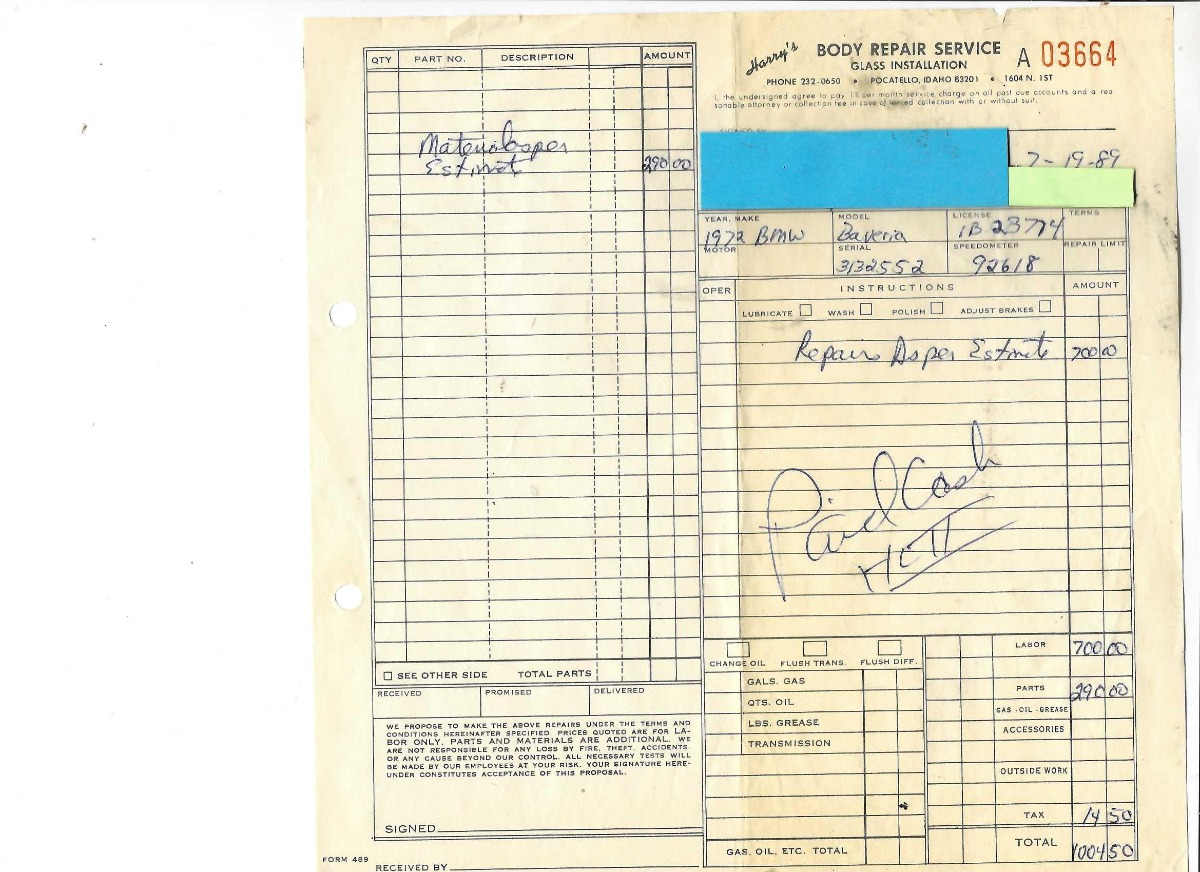 QTY PART NO. DESCRIPTION AMOUNT
Materials as per
Estimate 290 00
SEE OTHER SIDE TOTAL PARTS
RECEIVED PROMISED DELIVERED
WE PROPOSE TO MAKE THE ABOVE REPAIRS UNDER THE TERMS AND
CONDITIONS HEREINAFTER SPECIFIED. PRICES QUOTED ARE FOR LA-
BOR ONLY. PARTS AND MATERIALS ARE ADDITIONAL. WE
ARE NOT RESPONSIBLE FOR ANY LOSS BY FIRE, THEFT, ACCIDENTS
OR ANY CAUSE BEYOND OUR CONTROL. ALL NECESSARY TESTS WILL
BE MADE BY OUR EMPLOYEES AT YOUR RISK. YOUR SIGNATURE HERE-
UNDER CONSTITUTES ACCEPTANCE OF THIS PROPOSAL.
SIGNED
FORM 489
RECEIVED BY
Harry's BODY REPAIR SERVICE A 03664
GLASS INSTALLATION
PHONE 232-0650 • POCATELLO, IDAHO 83201 • 1604 N. 1ST
I, the undersigned agree to pay 1% per month service charge on all past due accounts and a rea-
sonable attorney or collection fee in case of forced collection with or without suit.
SIGNED BY
7-19-89
YEAR, MAKE MODEL LICENSE TERMS
1972 BMW Baveria 1B 23774
MOTOR SERIAL SPEEDOMETER REPAIR LIMIT
3132552 92618
OPER INSTRUCTIONS AMOUNT
LUBRICATE WASH POLISH ADJUST BRAKES
Repairs As per Estimate 700 00
Paid Cash
CHANGE OIL FLUSH TRANS. FLUSH DIFF.
GALS. GAS
QTS. OIL
LBS. GREASE
TRANSMISSION
GAS, OIL, ETC. TOTAL
LABOR 700 00
PARTS 290 00
GAS - OIL - GREASE
ACCESSORIES
OUTSIDE WORK
TAX 14 50
TOTAL 1004 50